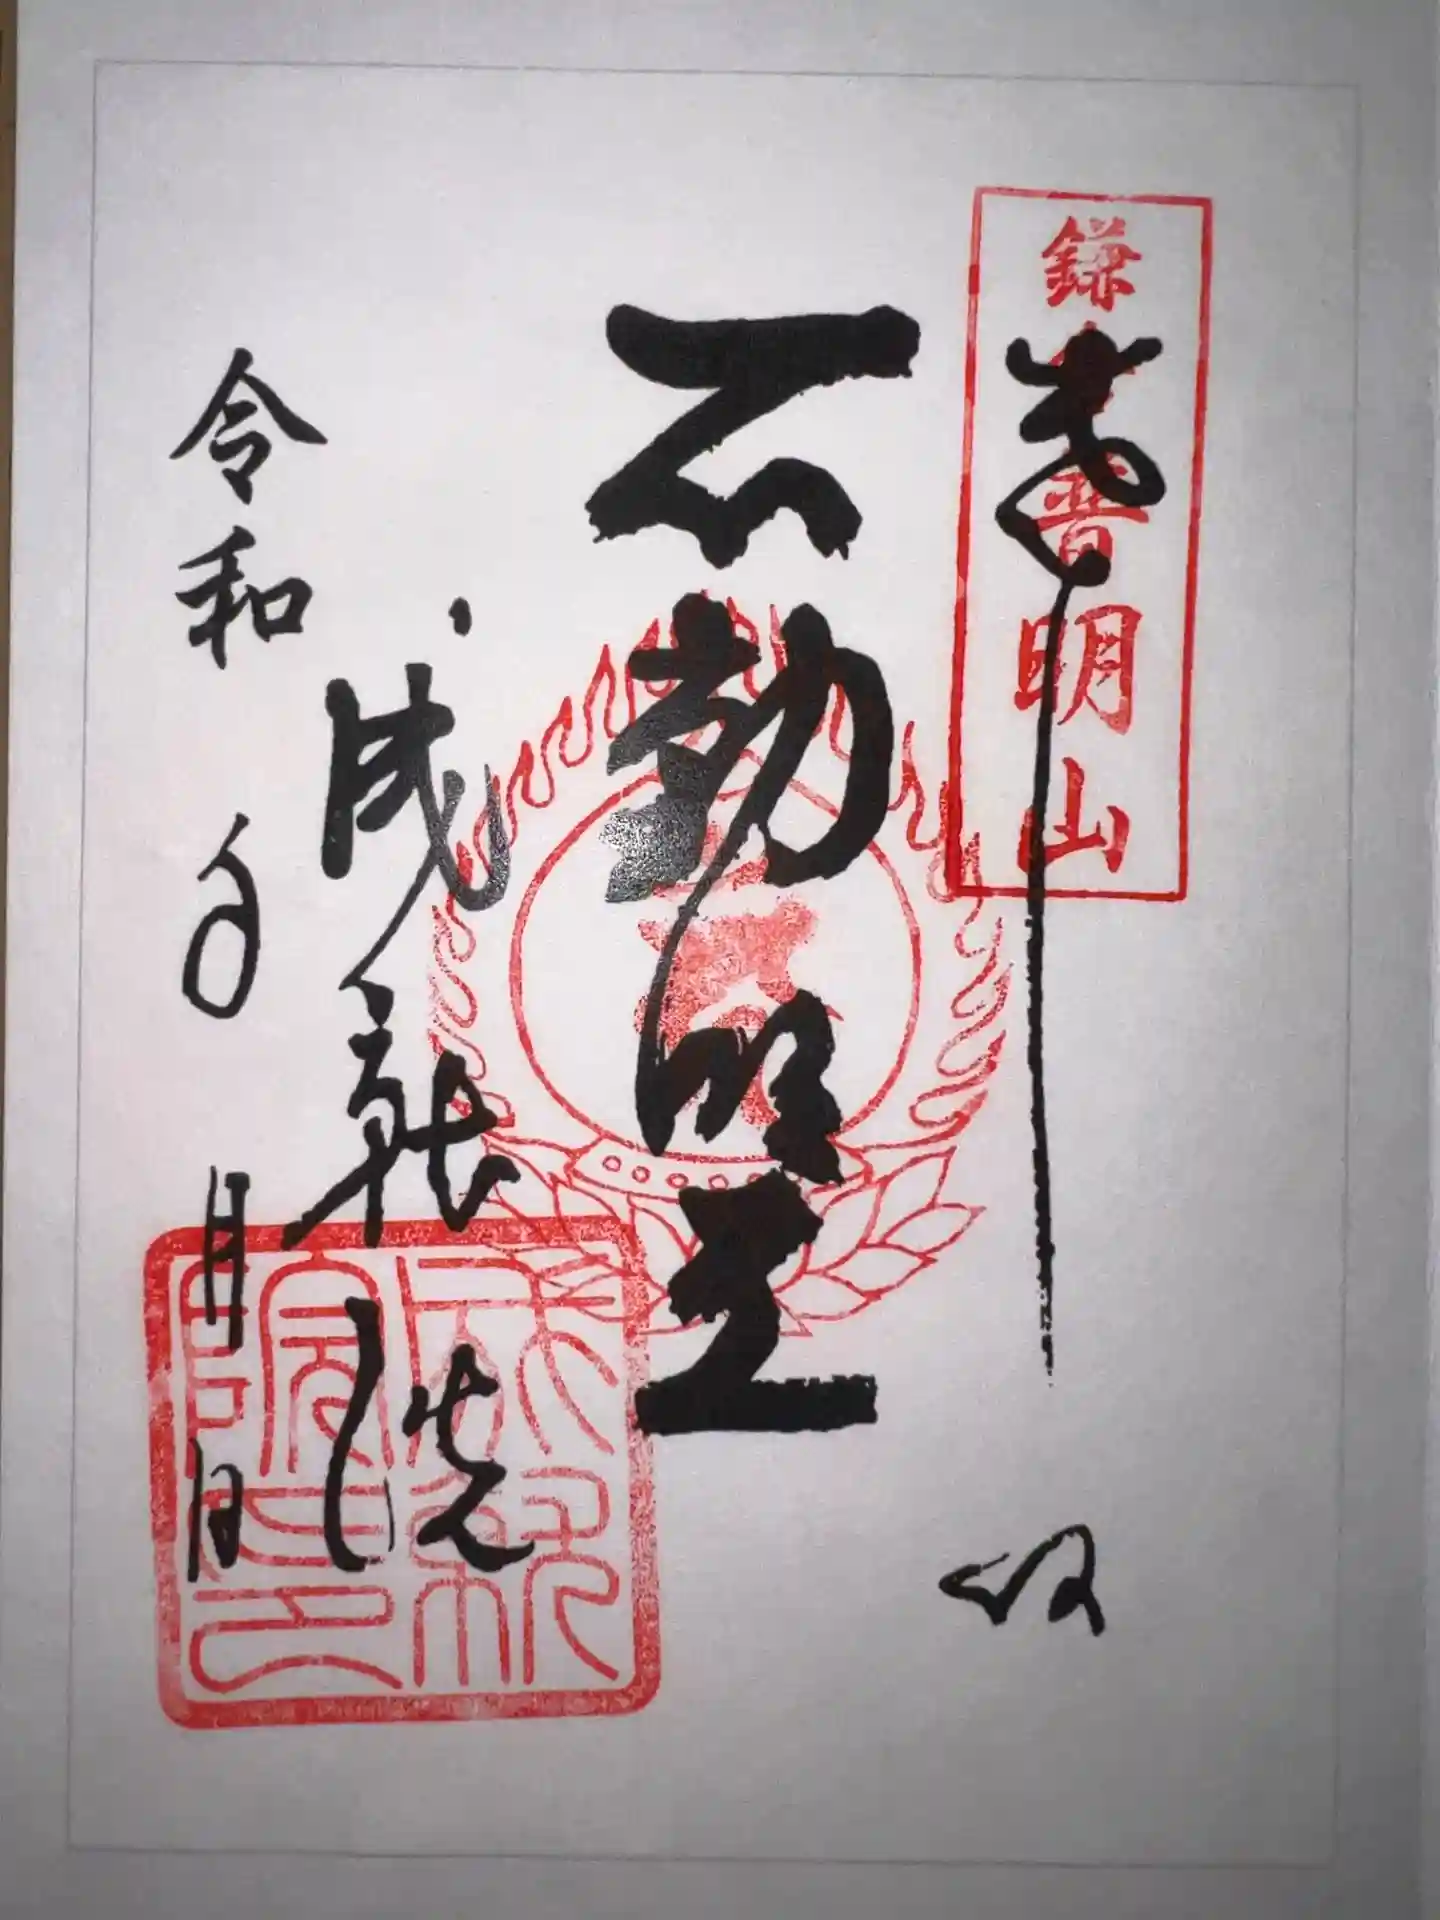 鎌倉普明山
奉拝
不動明王
成就院
令和 年 月 日
成就院印